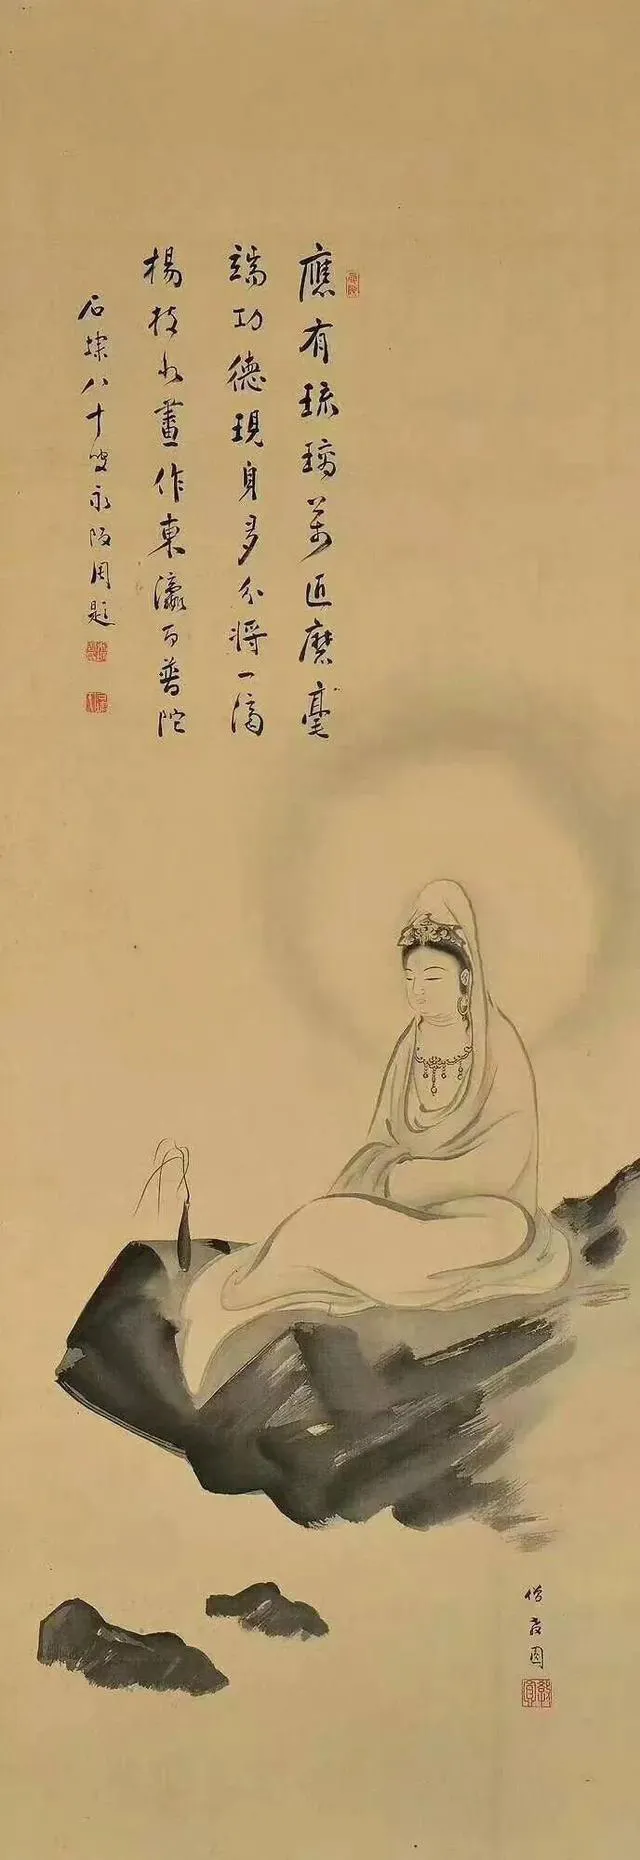 應有琉璃萬迊磨毫
端功德現身多分將一滴
楊枝水畫作東瀛百普陀
石埭八十叟永阪周題
僧